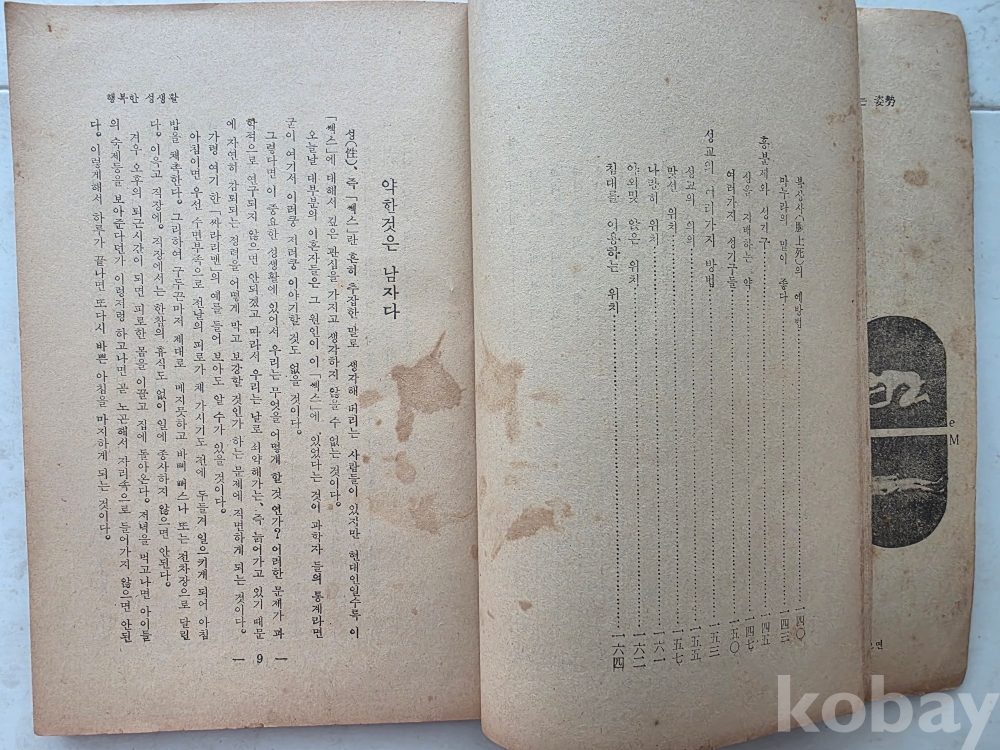 는 姿勢
e
M
으면
복상사(腹上死)의 예방법 一四〇
마누라의 말이 좋다 一四三
흥분제와 성기구 一四五
성을 지배하는 약 一四七
여러가지 성기구들 一五〇
성교의 여러가지 방법 一五三
성교의 의의 一五五
맞선 위치 一五七
나망히 위치 一六一
야외및 앉은 위치 一六二
침대를 이용하는 위치 一六四
행복한 성생활
약한것은 남자다
성(性)、즉「쎅스」란 흔히 추잡한 말로 생각해 버리는 사람들이 있지만 현대인일수록 이
「쎅스」에 대해서 깊은 관심을 가지고 생각하지 않을수 없는 것이다。
오늘날 대부분의 이혼자들은 그 원인이 이「쎅스」에 있었다는 것이 과학자 들의 통계라면
굳이 여기서 이러쿵 저러쿵 이야기할 것도 없을 것이다。
그렇다면 이 중요한 성생활에 있어서 우리는 무엇을 어떻게 할 것 연가? 이러한 문제가 과
학적으로 연구되지 않으면 안되겠고 따라서 우리는 날로 쇠약해가는、즉 늙어가고 있기 때문
에 자연히 감퇴되는 정력을 어떻게 막고 보강할 것인가 하는 문제에 직면하게 되는 것이다。
가령 여기 한「싸라리맨」의 예를 들어 보아도 알 수가 있을 것이다。
아침이면 우선 수면부족으로 전날의 피로가 채 가시기도 전에 두들겨 일으키게 되어 아침
밥을 채촉한다。그리하여 구두끈마저 제대로 메지못하고 바삐 뻐스나 또는 전차장으로 달린
다。이윽고 직장에。직장에서는 한참의 휴식도 없이 일에 종사하지 않으면 안된다。
겨우 오후의 퇴근시간이 되면 피로한 몸을 이끌고 집에 돌아온다。저녁을 먹고나면 아이들
의 숙제등을 보아준다던가 이렁저렁 하고나면 곧 노곤해서 자리속으로 들어가지 않으면 안된
다。이렇게해서 하루가 끝나면 또다시 바쁜 아침을 마지하게 되는 것이다。
— 9 —
kobay